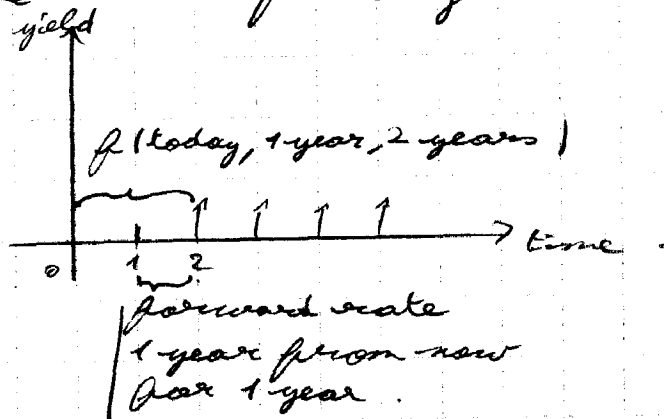 yield
f(today, 1 year, 2 years)
time.
0 1 2
forward rate
1 year from now
for 1 year.